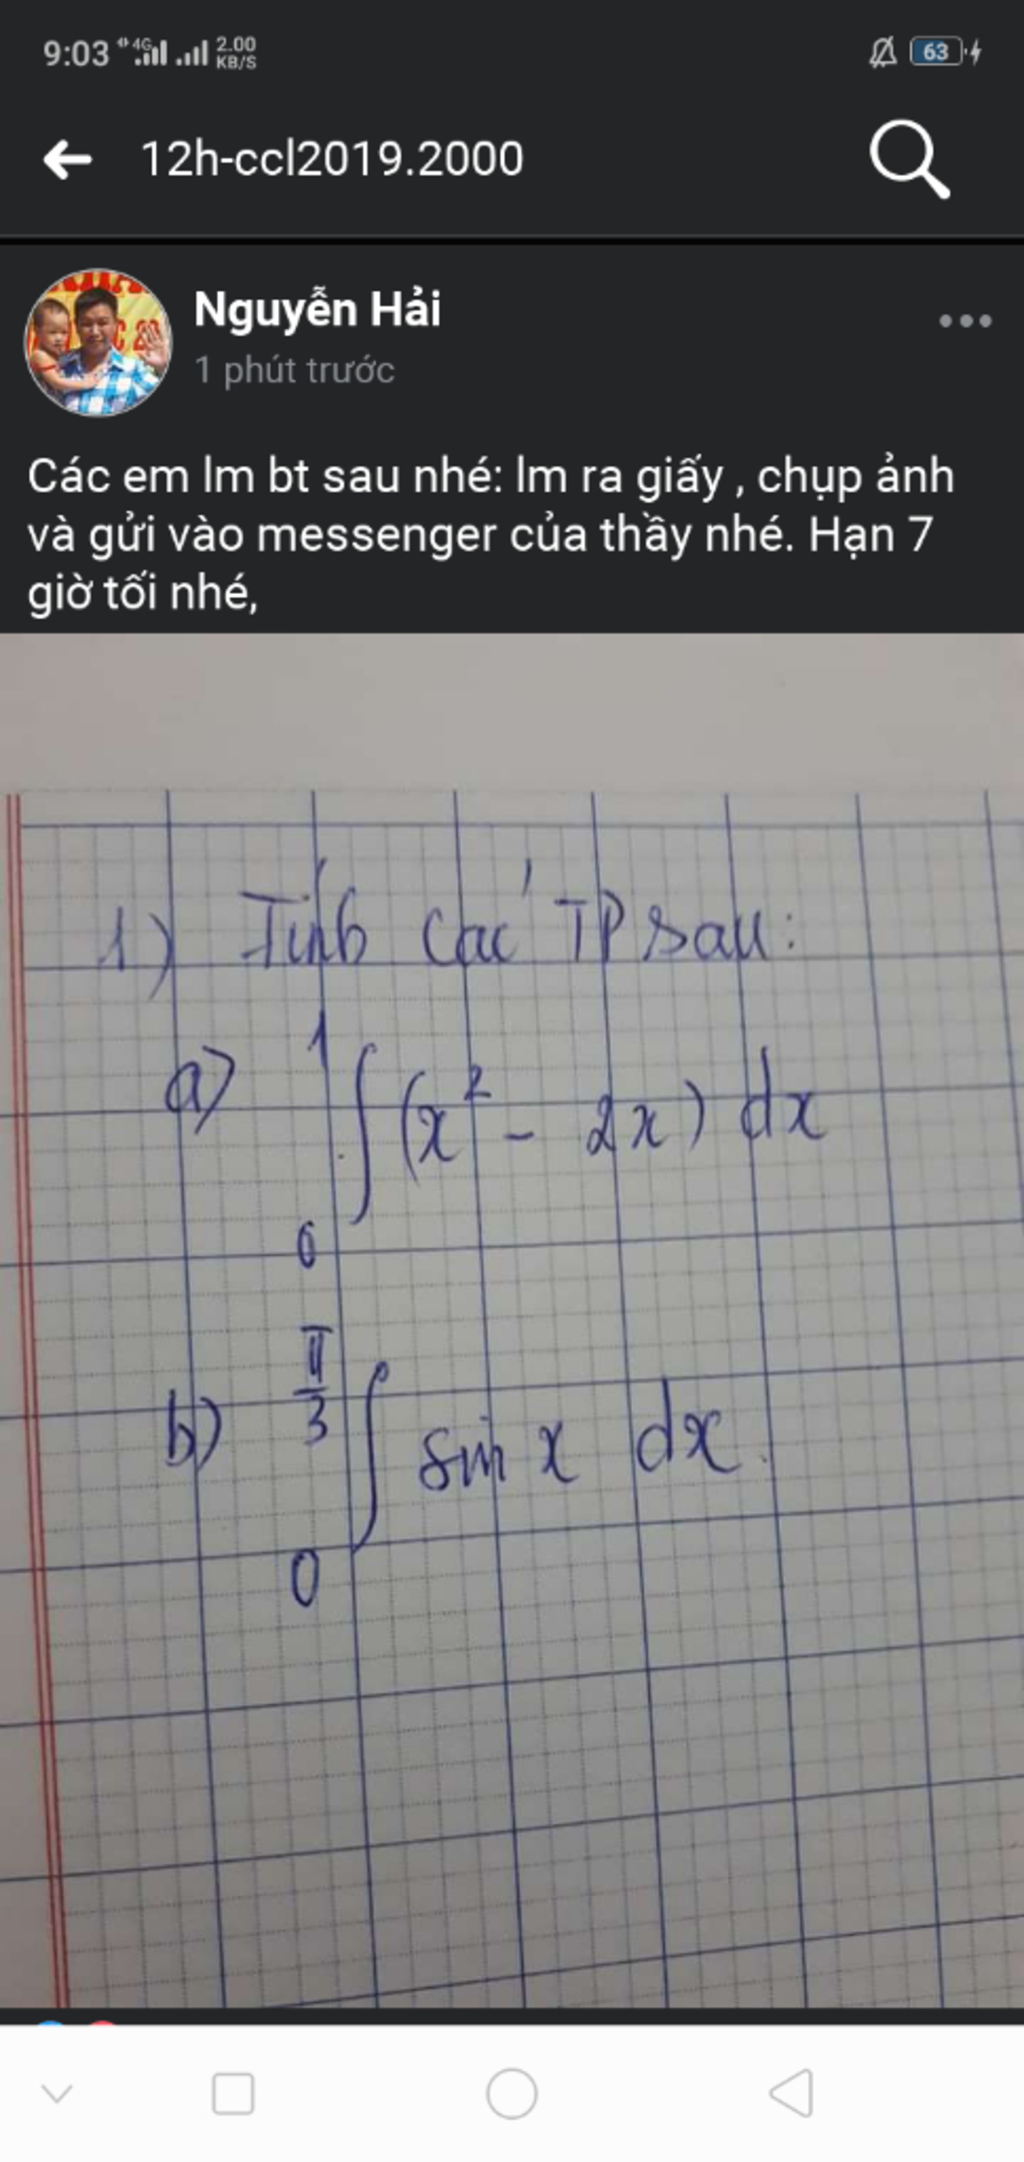 9:03 4G 2.00 KB/S 63
12h-ccl2019.2000
Nguyễn Hải
1 phút trước
Các em lm bt sau nhé: lm ra giấy , chụp ảnh
và gửi vào messenger của thầy nhé. Hạn 7
giờ tối nhé,
1) Tính các TP sau:
a) ∫₀¹ (x² - 2x) dx
b) ∫₀^(π/3) sin x dx.